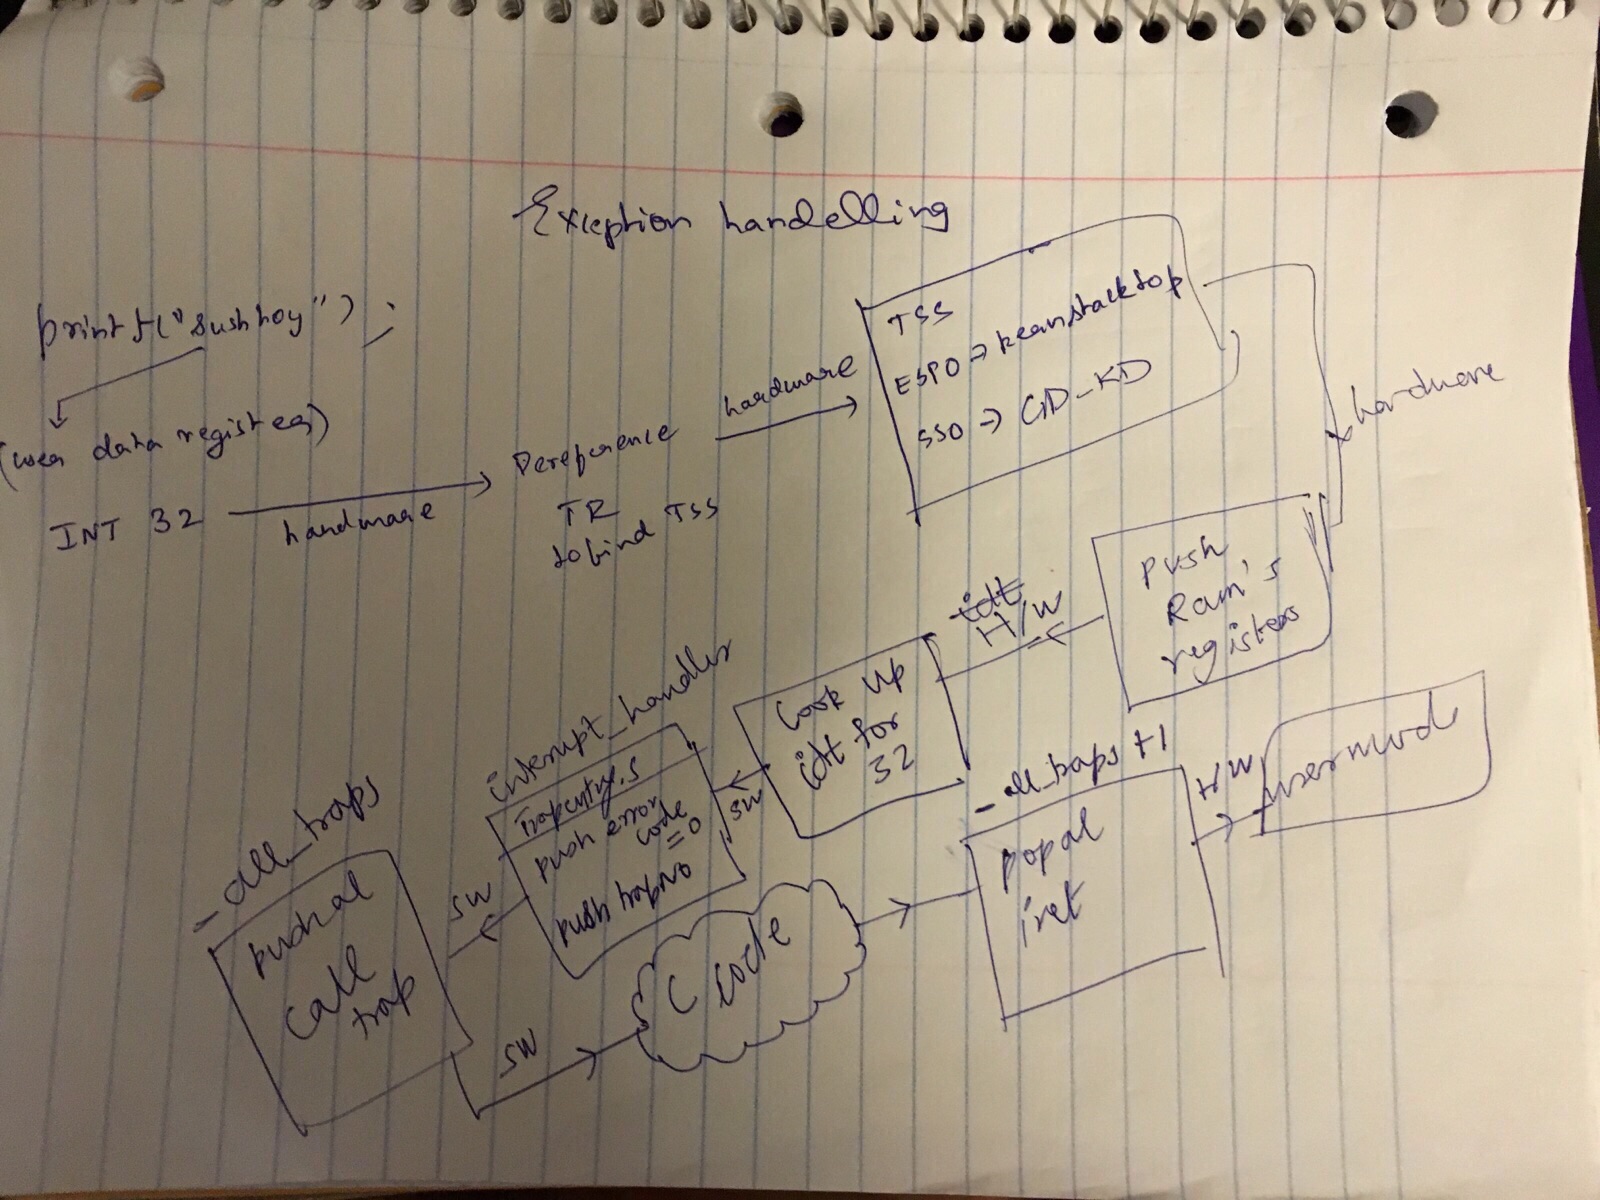 Exception handelling
printf("Sushhoy");
(user data registers)
INT 32
hardware
Dereference
TR
to find TSS
hardware
TSS
ESP0 → kernstacktop
SS0 → GD_KD
hardware
push
Ram's
registers
idt
H/W
Look up
idt for
32
SW
interrupt_handler
Trapentry.s
push error
code
=0
push trapno
SW
_all_traps
pushal
call
trap
SW
C code
_all_traps +1
popal
iret
H/W
usermod